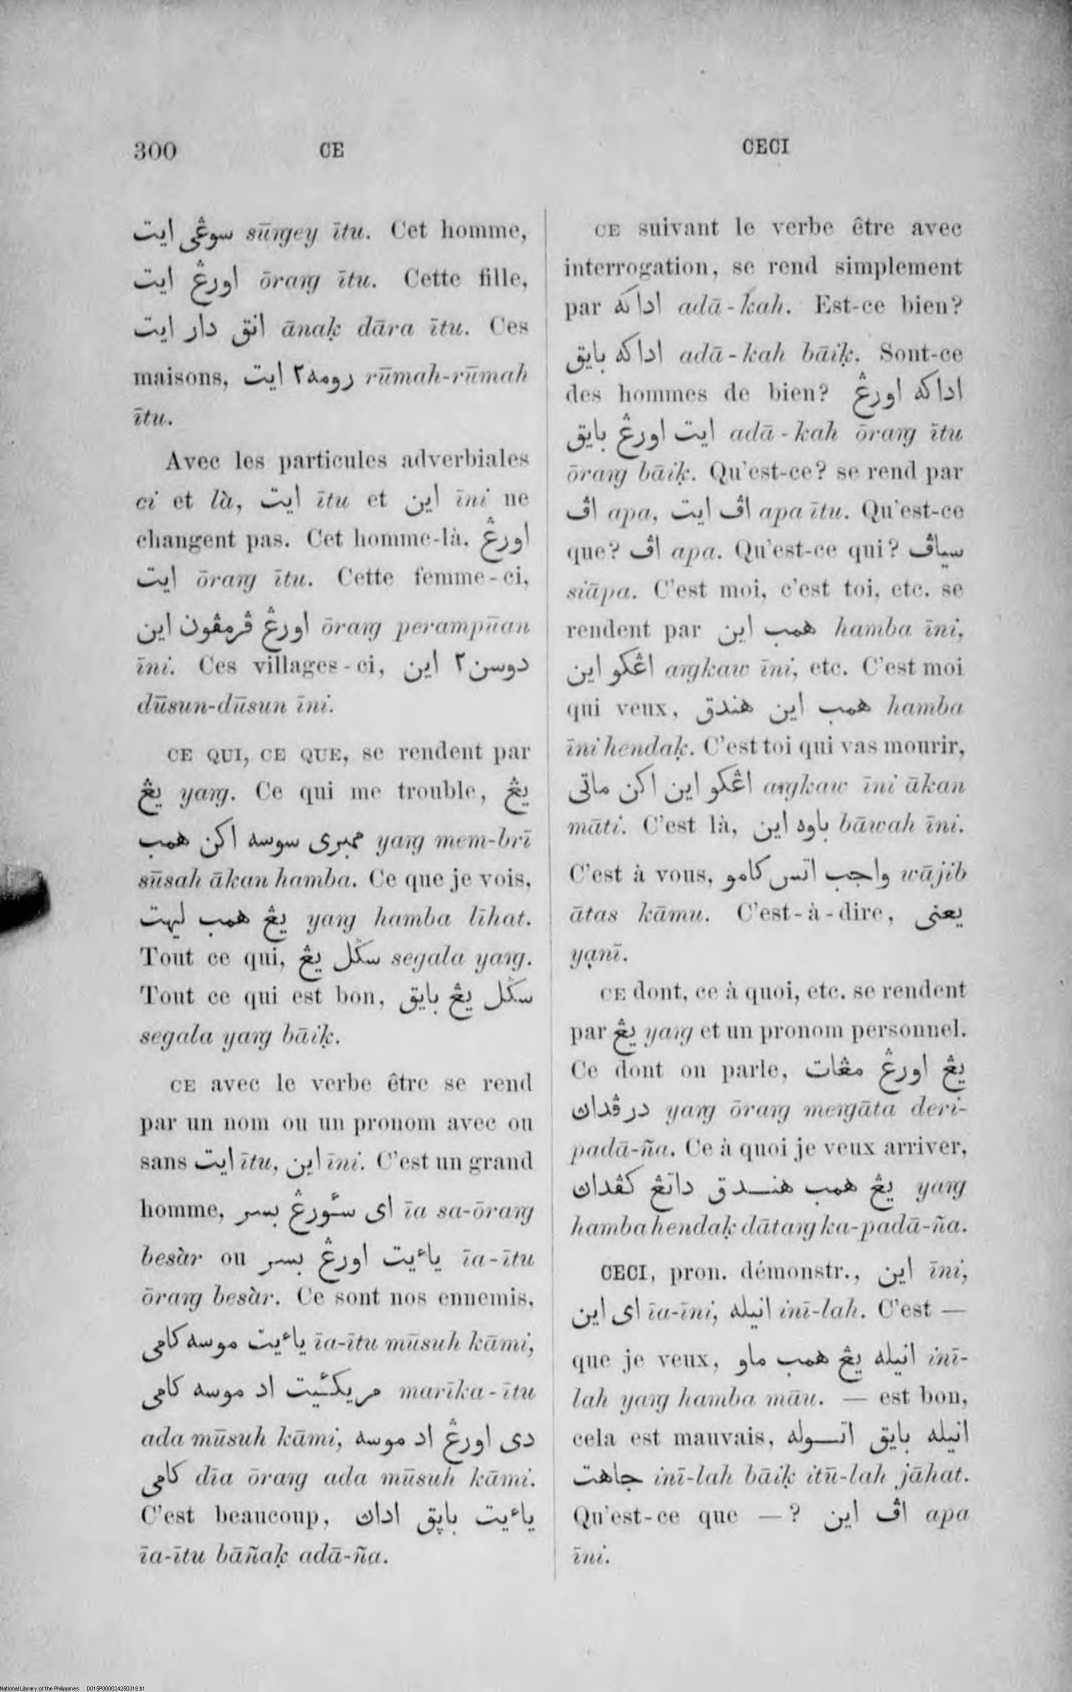 300 CE
CECI
سوڠي ايت sūŋgey ītu. Cet homme,
اورڠ ايت ōraŋ ītu. Cette fille,
انق دار ايت ānaḳ dāra ītu. Ces
maisons, رومه٢ ايت rūmah-rūmah
ītu.
Avec les particules adverbiales
ci et là, ايت ītu et اين īni ne
changent pas. Cet homme-là, اورڠ
ايت ōraŋ ītu. Cette femme-ci,
اورڠ ڤرمڤون اين ōraŋ perampūan
īni. Ces villages-ci, دوسن٢ اين
dūsun-dūsun īni.
CE QUI, CE QUE, se rendent par
يڠ yaŋ. Ce qui me trouble, يڠ
ممبري سوسه اكن همب yaŋ mem-brī
sūsah ākan hamba. Ce que je vois,
يڠ همب ليهت yaŋ hamba līhat.
Tout ce qui, سݢل يڠ segala yaŋ.
Tout ce qui est bon, سݢل يڠ بايق
segala yaŋ bāiḳ.
CE avec le verbe être se rend
par un nom ou un pronom avec ou
sans ايت ītu, اين īni. C'est un grand
homme, اي سٔورڠ بسر īa sa-ōraŋ
besàr ou ياءيت اورڠ بسر īa-ītu
ōraŋ besàr. Ce sont nos ennemis,
ياءيت موسه كامي īa-ītu mūsuh kāmi,
مريكئيت اد موسه كامي marīka-ītu
ada mūsuh kāmi, دي اورڠ اد موسه
كامي dīa ōraŋ ada mūsuh kāmi.
C'est beaucoup, ياءيت باڽق اداڽ
īa-ītu bāñaḳ adā-ña.
CE suivant le verbe être avec
interrogation, se rend simplement
par اداكه adā-kah. Est-ce bien?
اداكه بايق adā-kah bāiḳ. Sont-ce
des hommes de bien? اداكه اورڠ
ايت اورڠ بايق adā-kah ōraŋ ītu
ōraŋ bāiḳ. Qu'est-ce? se rend par
اڤ apa, اڤ ايت apa ītu. Qu'est-ce
que? اڤ apa. Qu'est-ce qui? سياڤ
siāpa. C'est moi, c'est toi, etc. se
rendent par همب اين hamba īni,
اڠكو اين aŋkaw īni, etc. C'est moi
qui veux, همب اين هندق hamba
īni hendaḳ. C'est toi qui vas mourir,
اڠكو اين اكن ماتي aŋkaw īni ākan
māti. C'est là, باوه اين bāwah īni.
C'est à vous, واجب اتس كامو wājib
ātas kāmu. C'est-à-dire, يعني
yạnī.
CE dont, ce à quoi, etc. se rendent
par يڠ yaŋ et un pronom personnel.
Ce dont on parle, يڠ اورڠ مڠات
درڤداڽ yaŋ ōraŋ meŋāta deri-
padā-ña. Ce à quoi je veux arriver,
يڠ همب هندق داتڠ كڤداڽ yaŋ
hamba hendaḳ dātaŋ ka-padā-ña.
CECI, pron. démonstr., اين īni,
اي اين īa-īni, انيله inī-lah. C'est —
que je veux, انيله يڠ همب ماو inī-
lah yaŋ hamba māu. — est bon,
cela est mauvais, انيله بايق اتوله
جاهت inī-lah bāiḳ itū-lah jāhat.
Qu'est-ce que — ? اڤ اين apa
īni.
National Library of the Philippines